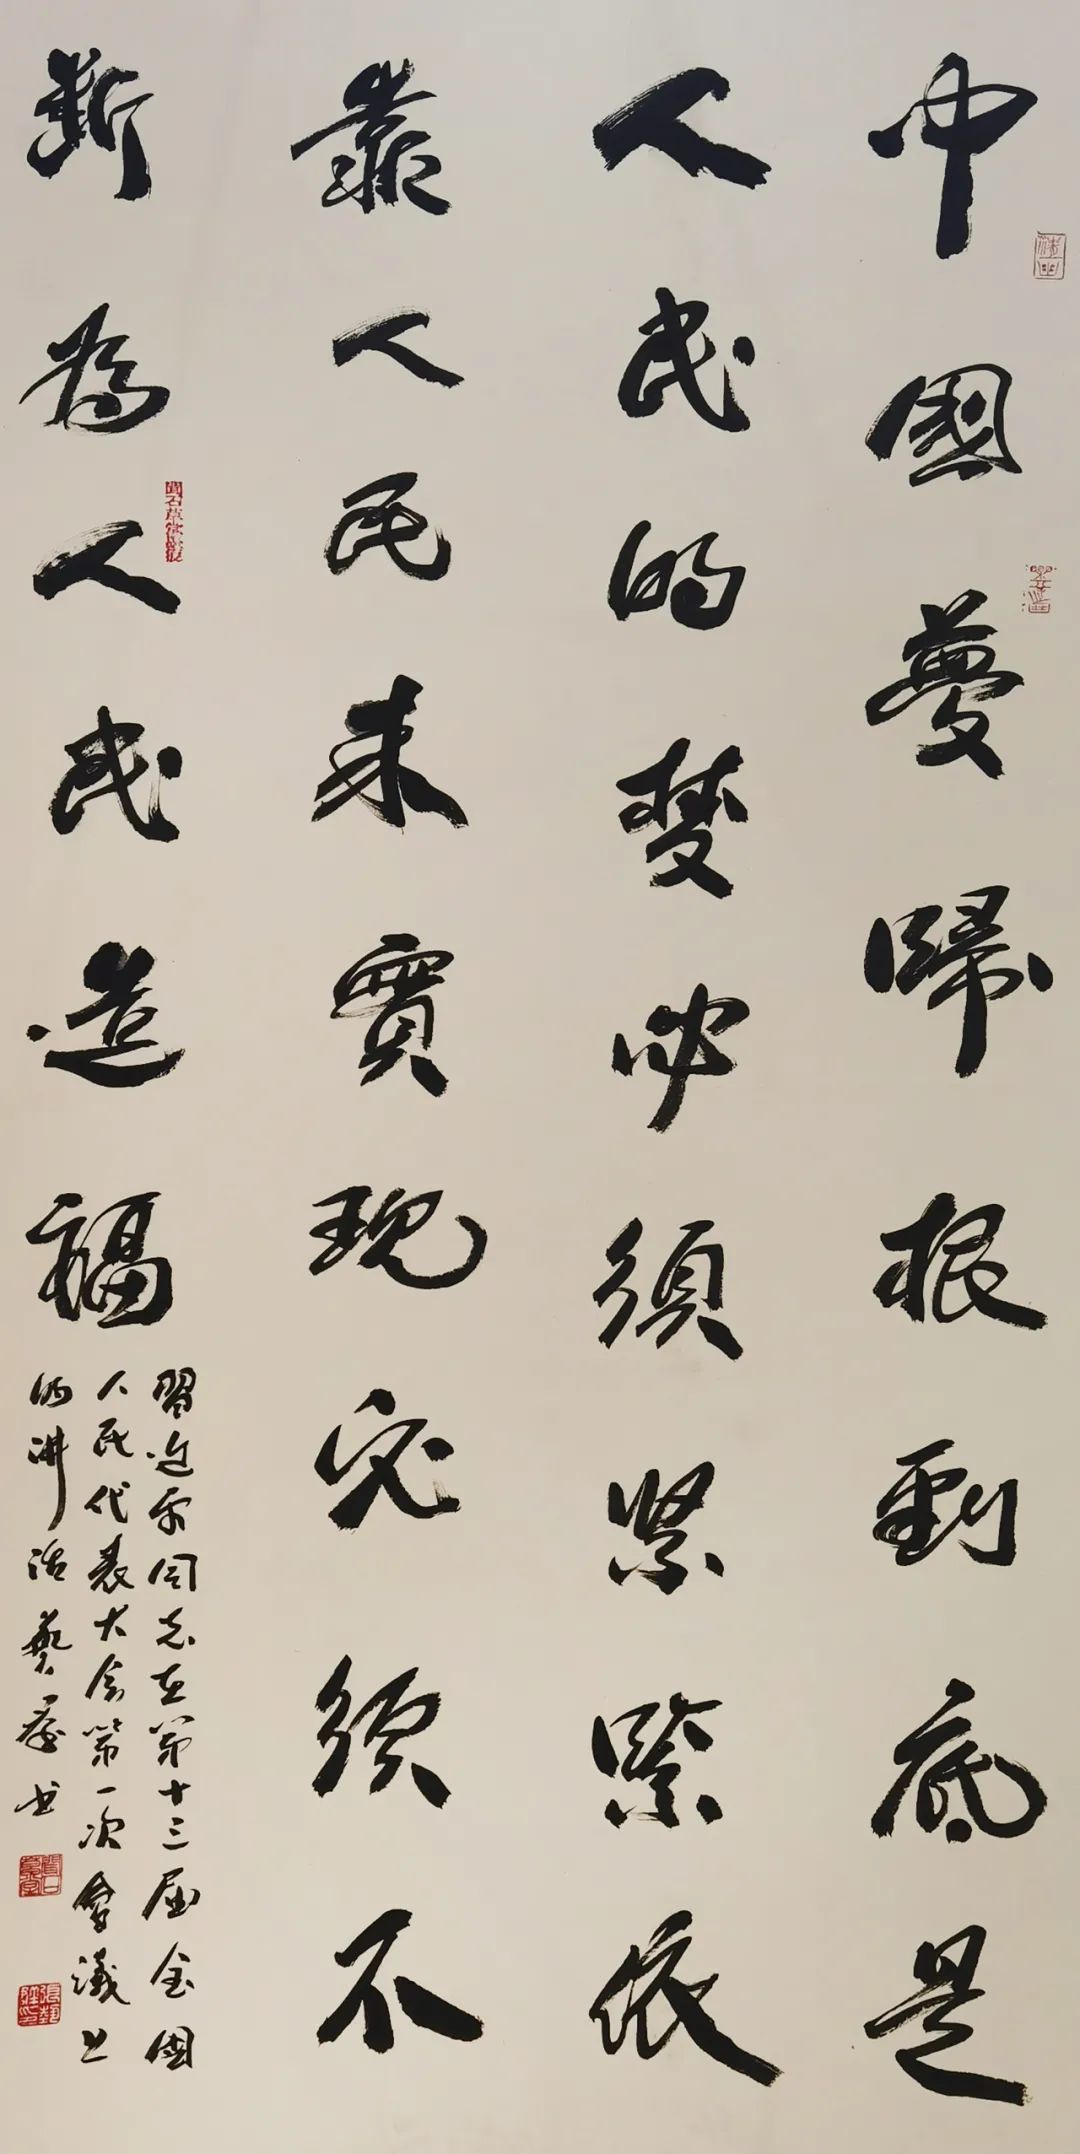 中國夢歸根到底是
人民的梦必須紧緊依
靠人民来實現必须不
斷為人民造福
習近平同志在第十三届全國
人民代表大会第一次會議上
的讲话藝书